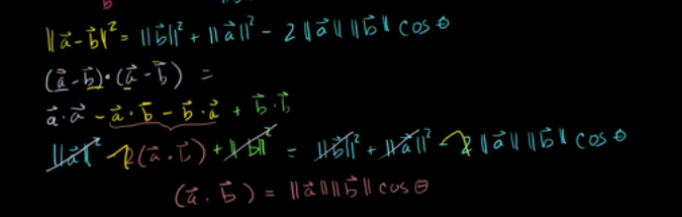 b
‖a⃗ - b⃗‖² = ‖b⃗‖² + ‖a⃗‖² - 2 ‖a⃗‖ ‖b⃗‖ cos θ
(a⃗ - b⃗)·(a⃗ - b⃗) =
a⃗·a⃗ - a⃗·b⃗ - b⃗·a⃗ + b⃗·b⃗
‖a⃗‖² - 2(a⃗·b⃗) + ‖b⃗‖² = ‖b⃗‖² + ‖a⃗‖² - 2 ‖a⃗‖ ‖b⃗‖ cos θ
(a⃗·b⃗) = ‖a⃗‖‖b⃗‖ cos θ